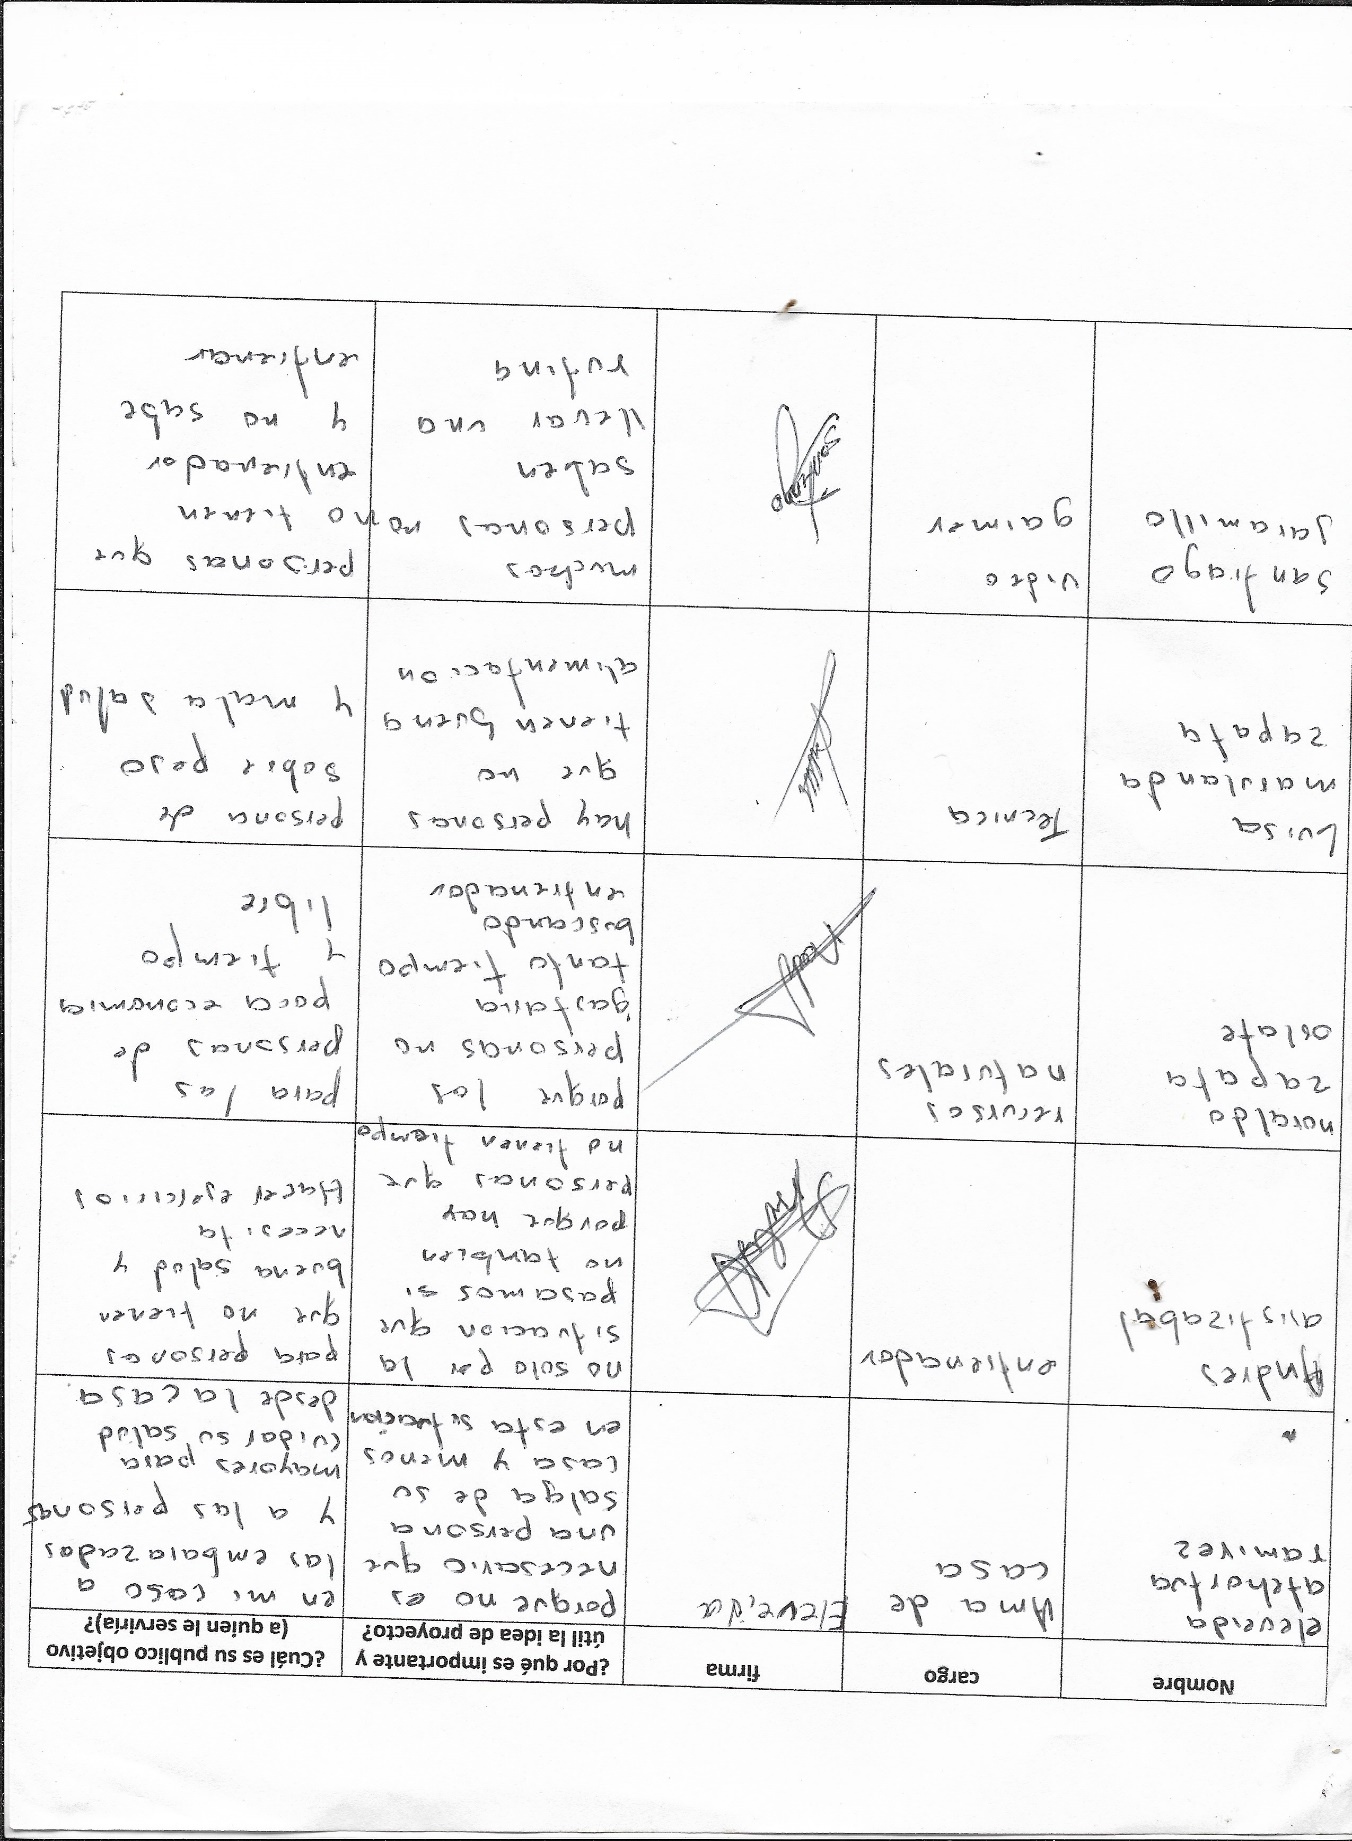 Nombre
cargo
firma
¿Por qué es importante y
útil la idea de proyecto?
¿Cuál es su publico objetivo
(a quien le serviría)?
eleveida
atehortua
ramirez
Ama de
casa
Eleveida
porque no es
necesario que
una persona
salga de su
casa y menos
en esta situación
en mi caso a
las embarazadas
y a las personas
mayores para
cuidar su salud
desde la casa
Andres
aristizabal
entrenador
no solo por la
situacion que
pasamos si
no tambien
porque hay
personas que
no tienen tiempo
para personas
que no tienen
buena salud y
necesita
Hacer ejercicios
noralda
zapata
oslate
recursos
naturales
porque las
personas no
gastaria
tanto tiempo
buscando
entrenador
para las
personas de
poca economia
y tiempo
libre
Luisa
marulanda
zapata
Tecnica
hay personas
que no
tienen buena
alimentacion
persona de
sobre peso
y mala salud
santiago
jaramillo
video
gaimer
Santiago
muchos
personas no
saben
llevar una
rutina
personas que
no tienen
entrenador
y no sabe
entrenar